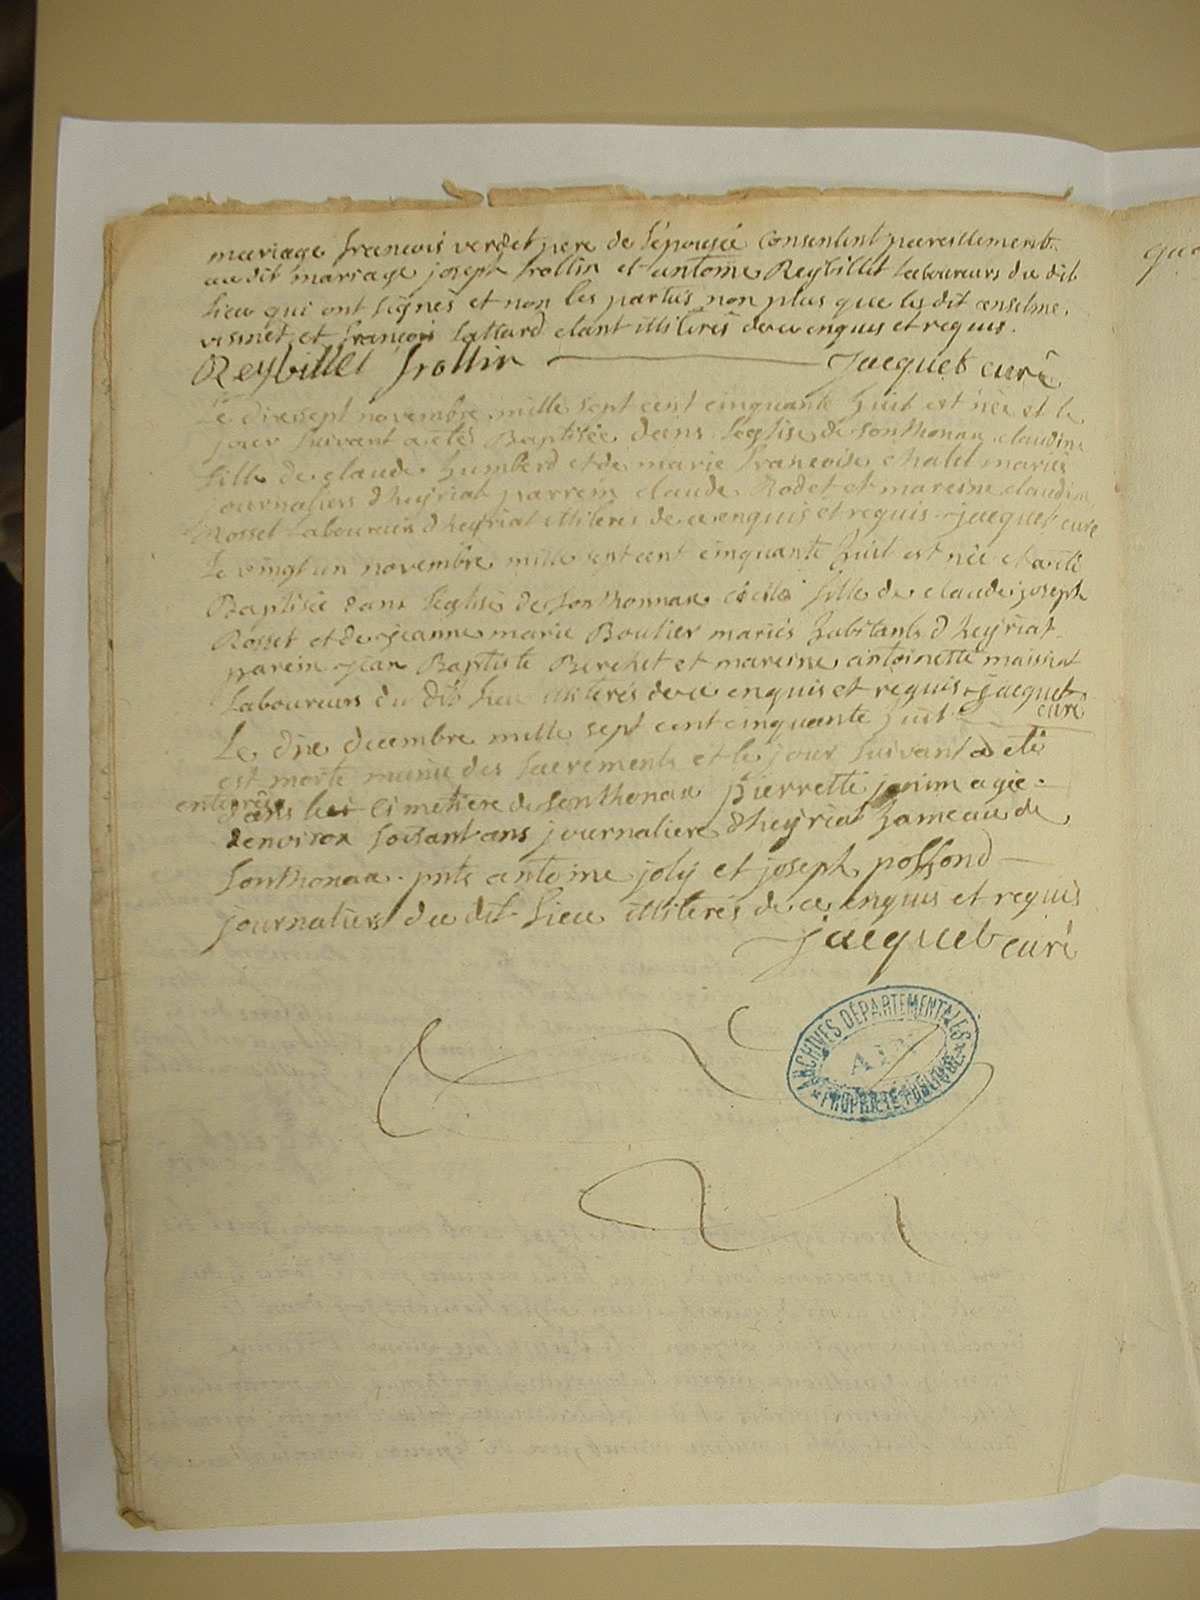 mariage francois verdet pere de l'epousée Consentent pareillement
au dit mariage joseph frollin et antoine Reybillet laboureurs du dit
lieu qui ont signés et non les parties non plus que les dit anselme
vismet et françois lallard etant illiteres de ce enquis et requis.
Reybillet frollin jacquet curé
Le dixsept novembre mille sept cent cinquante huit est née et le
jour suivant a etés Baptisée dans l'eglise de sonthonax claudine
fille de claude humberd et de marie francoise chatel mariés
journaliers d'heyriat parrein claude Rodet et mareine claudine
Rosset laboureurs d'heyriat illiteres de ce enquis et requis jacquet curé
Le vingt un novembre mille sept cent cinquante huit est née et a eté
Baptisée dans l'eglise de sonthonnax cécile fille de claude joseph
Rosset et de jeanne marie Boulier mariés habitants d'heyriat
parein jean Baptiste Berchet et mareine antoinette maissiat
laboureurs du dit lieu illiterés de ce enquis et requis jacquet
curé
Le dix decembre mille sept cent cinquante huit
est morte munie des sacrements et le jour suivant a eté
enterrée dans le cimetiere de sonthonax pierrette janin agée
d'environ soisant ans journaliere d'heyriat hameau de
sonthonax. pnts antoine joly et joseph possond
journaliers du dit lieu illiterés de ce enquis et requis
jacquet curé
ARCHIVES DÉPARTEMENTALES
AIN
PROPRIÉTÉ PUBLIQUE